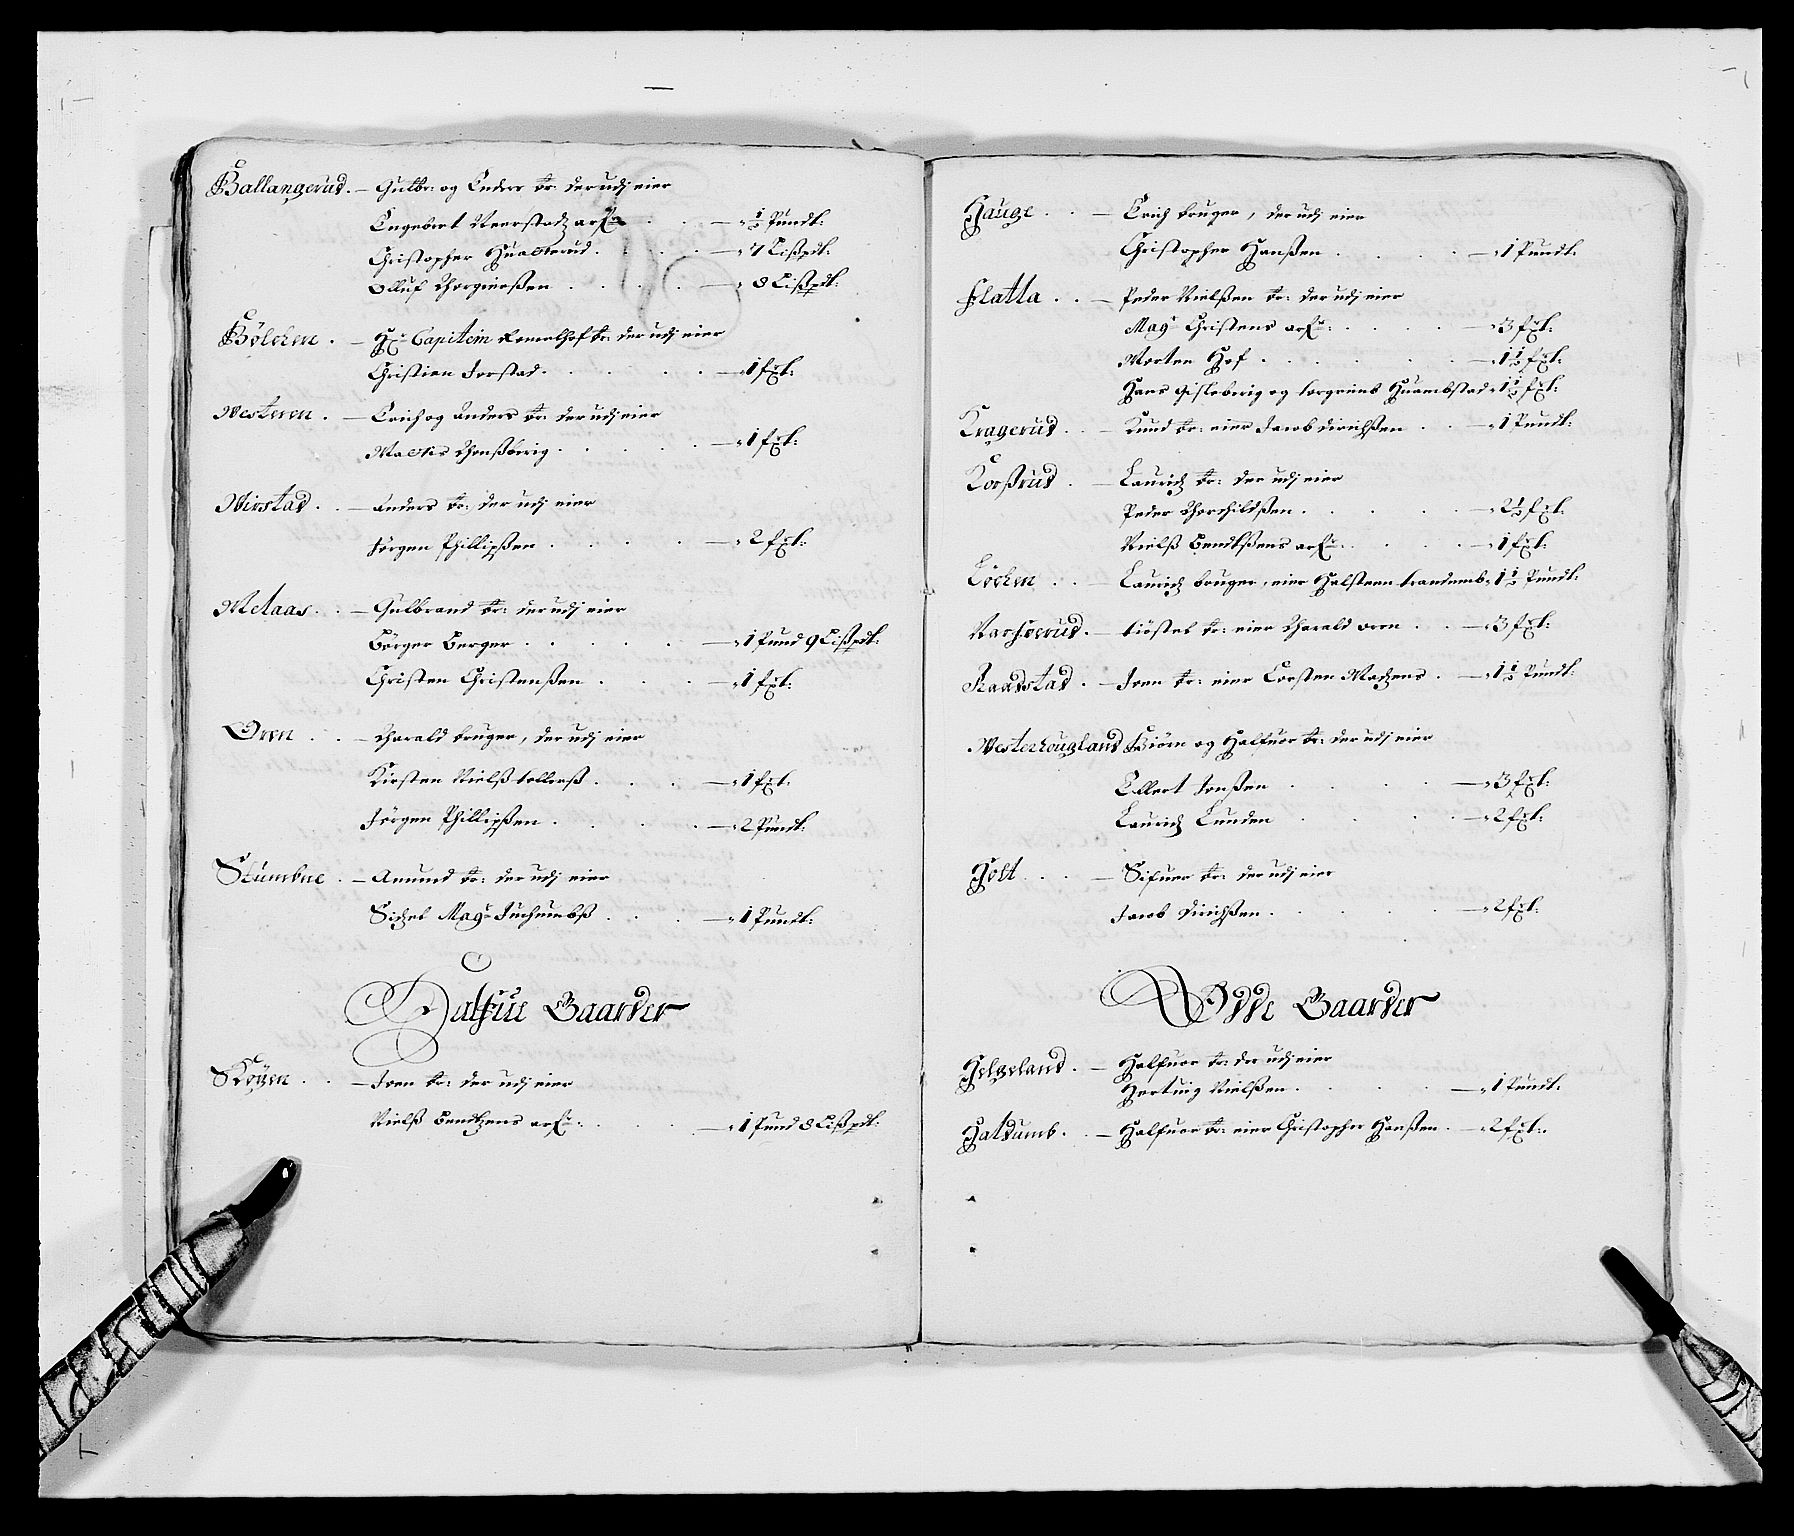 Ballangerud. – Gulbr: og Enders br: der udj eier
Engebret Neerstadz arf: . . . – ½ Pundt:
Christopher Hualerud . . . . – 7 Lißpdt:
Olluf Thorgierßen . . . . . – 8 Lißpdt:
Bølchen . – Hr: Capitein br: der udj eier
Christien Forstad . . . . . – 1 fxl:
Westeren . – Erich og Anders br: der udj eier
Mattis Thonßberig . . . . . – 1 fxl:
Wirstad . . – Anders br: der udj eier
Jørgen Phillipßen . . . . – 2 fxl:
Melaas . . – Gulbrand br: der udj eier
Børger Berger . . . . . – 1 Pund 9 Lißpdt:
Christen Christenßen . . . . – 1 fxl:
Oren . . – Tharald bruger, der udj eier
Kirsten Nielß tollerß . . . . – 1 fxl:
Jørgen Phillipßen . . . . . – 2 Pundt:
Stumbne . – Amund br: der udj eier
Sichel Magr Juchumbß . . . – 1 Pundt:
Gaarder
Skøyen . . – Iven br: der udj eier
Nielß Bendtzens arf: . . . . – 1 Pund 8 Lißpdt:
Hauge . . – Erich bruger, der udj eier
Christopher Hanßen . . . . – 1 Pundt:
Flatta . . – Peder Nielßen br: der udj eier
Magr Christens arf: . . . . – 3 fxl:
Morten Hof . . . . . – 1½ fxl:
Hans Gisleberig og torgrimb Huambstad 1½ fxl:
Kragerud . . – Knud br: eier Jacob Dirichßen . . – 1 Pundt:
Korßrud . – Lauridz br: der udj eier
Peder Thorchildßen . . . . . – 2½ fxl:
Nielß Bendtßens arf: . . . . – 1 fxl:
Løchen . . – Lauridz bruger, eier Halsteen trandemb 1½ Pundt:
Narfverud . – tiøstel br: eier Tharald oren . . – 3 fxl:
Raadstad . – Iven br: eier Torsten Madzens . – 1½ Pundt:
Westerhougland Biørn og Halfuor br: der udj eier
Ellert Jonßen . . . . – 3 fxl:
Lauridz Lunden . . . . – 2 fxl:
Holt . . . – Sifuer br: der udj eier
Jacob Dirichßen . . . . . – 2 fxl:
Ødde Gaarder
Helgeland . – Halfuor br: der udj eier
Hertuig Nielßen . . . . . – 1 Pundt:
Haldumb . . – Halfuor br: eier Christopher Hanßen . – 2 fxl: